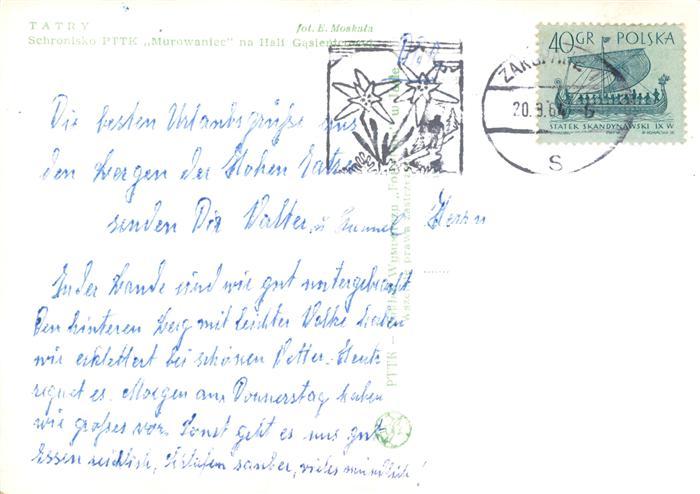 TATRY
fot. E. Moskała
Schronisko PTTK „Murowaniec" na Hali
40 GR POLSKA
STATEK SKANDYNAWSKI IX W
20.9.6
S
Die besten Urlaubsgrüße aus
den Bergen der Hohen Tatra
senden Dir Walter u.
Herrn
In der Baude sind wir gut untergebracht
Den hinteren Berg mit leichter Wolke haben
wir erklettert bei schönen Wetter. Heute
regnet es. Morgen am Donnerstag haben
wir großes vor. Sonst geht es uns gut
Essen reichlich, Schlafen sauber, vieles mündlich!
PTTK